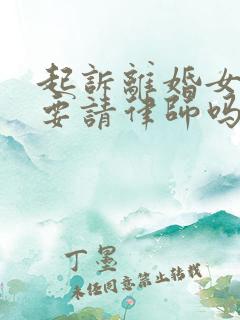 起訴離婚女
要請律師嗎
丁墨
未经同意禁止转载